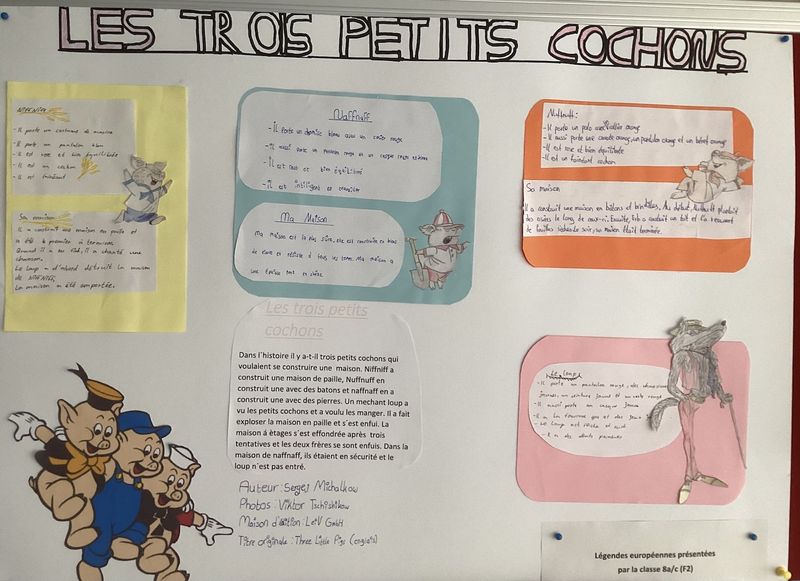 LES TROIS PETITS COCHONS
NIFNIFF
- Il porte un costume de marin
- Il porte un pantalon bleu
- Il est rose et bien équilibré
- Il est un cochon
- Il est fainéant
Sa maison
Il a construit une maison en paille et
a été le premier à terminer.
Quand il a eu fini, il a chanté une
chanson.
Le loup a d'abord détruit la maison
de NIFNIFF,
La maison a été emportée.
Naffnaff
- Il porte un
- Il aussi porte un pantalon rouge et un casque
- Il est rose et bien équilibré
- Il est intelligent et
Ma Maison
Ma maison est la plus sûre, elle est construite en blocs
de pierre et résiste à tous les vents. Ma maison a
une
Nuffnuff:
- Il porte un polo orange
- Il aussi porte une cravate orange, un pantalon orange et un béret orange
- Il est rose et bien équilibré
- Il est un fainéant cochon
Sa maison
Il a construit une maison en bâtons et brindilles. Au début, Nuffnuff plantait
des osiers le long de Ensuite, il a construit un toit et l'a recouvert
de feuilles soir, sa maison était terminée.
Les trois petits
cochons
Dans l´histoire il y a-t-il trois petits cochons qui
voulaient se construire une maison. Niffniff a
construit une maison de paille, Nuffnuff en
construit une avec des batons et naffnaff en a
construit une avec des pierres. Un mechant loup a
vu les petits cochons et a voulu les manger. Il a fait
exploser la maison en paille et s´est enfui. La
maison á ètages s´est effondrée après trois
tentatives et les deux frères se sont enfuis. Dans la
maison de naffnaff, ils étaient en sécurité et le
loup n´est pas entré.
Auteur : Sergej Michalkow
Photos : Viktor Tschishikow
Maison d'édition : LeiV GmbH
Titre originale : Three Little Pigs (anglais)
Le loup
- Il porte un pantalon rouge, des chaussures
jaunes, un ceinture jaune et un veste rouge
- Il aussi porte un casque jaune
- Il a la fourrure gris et des yeux
- Le loup est
- Il a des dents pointues
Légendes européennes présentées
par la classe 8a/c (F2)